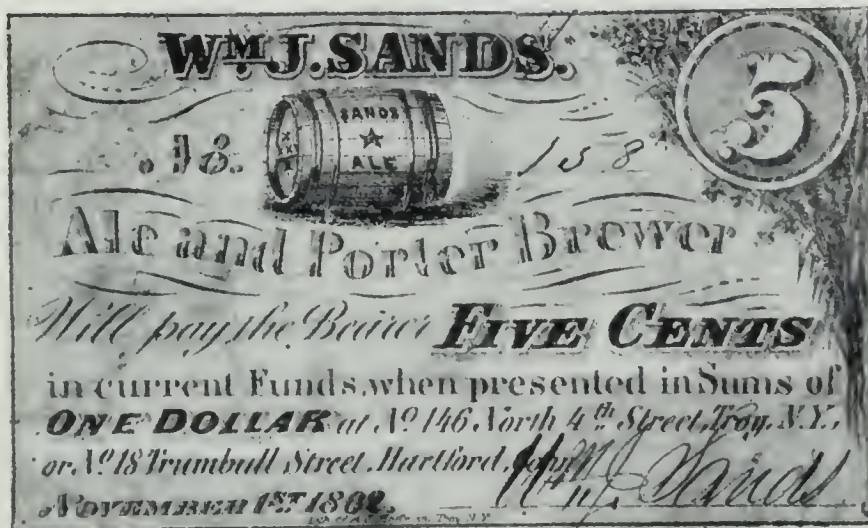 WM. J. SANDS.
5
SANDS
ALE
158
Ale and Porter Brewer
Will pay the Bearer FIVE CENTS
in current Funds, when presented in Sums of
ONE DOLLAR at No. 146, North 4th Street, Troy, N.Y.,
or No. 18 Trumbull Street, Hartford, Conn.
NOVEMBER 1ST 1862.
Wm J. Sands